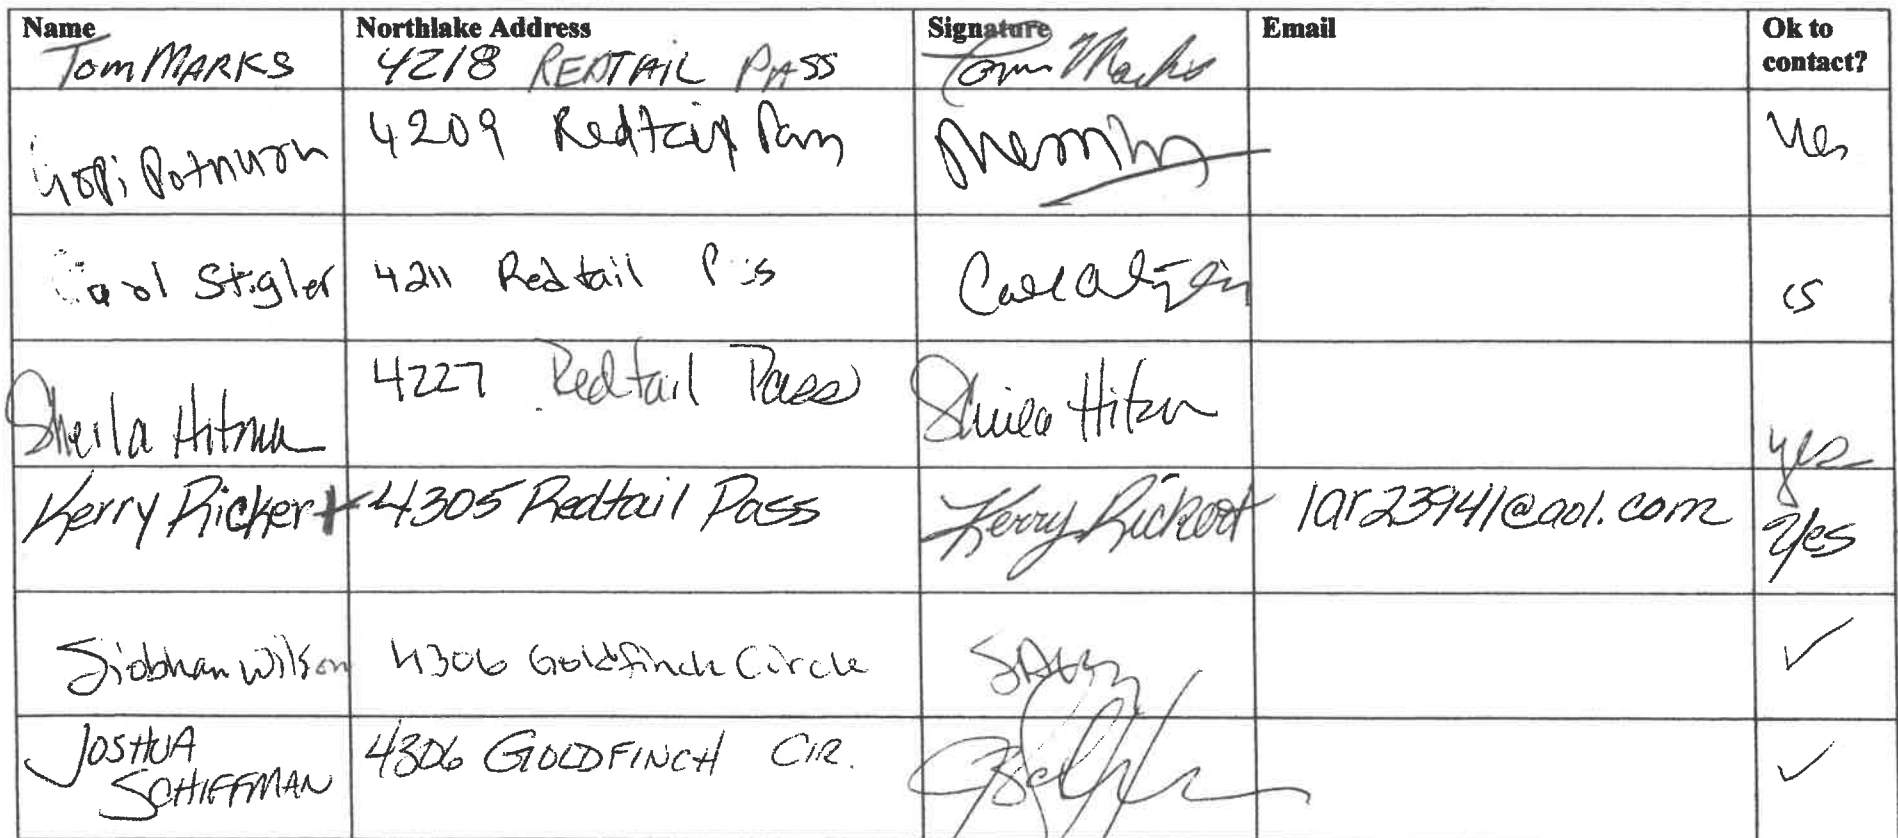 Name Northlake Address Signature Email Ok to
contact?
Tom MARKS 4218 REDTAIL PASS Tom Marks
Gopi Potnuru 4209 Redtail Pass Yes
Carol Stigler 4211 Redtail P ss es
Sheila Hitma 4227 Redtail Pass Sheila yes
Kerry Rickert 4305 Redtail Pass Kerry Rickert lar23941@aol.com Yes
Siobhan Wilson 4306 Goldfinch Circle ✓
JOSHUA
SCHIFFMAN 4306 GOLDFINCH CIR. ✓